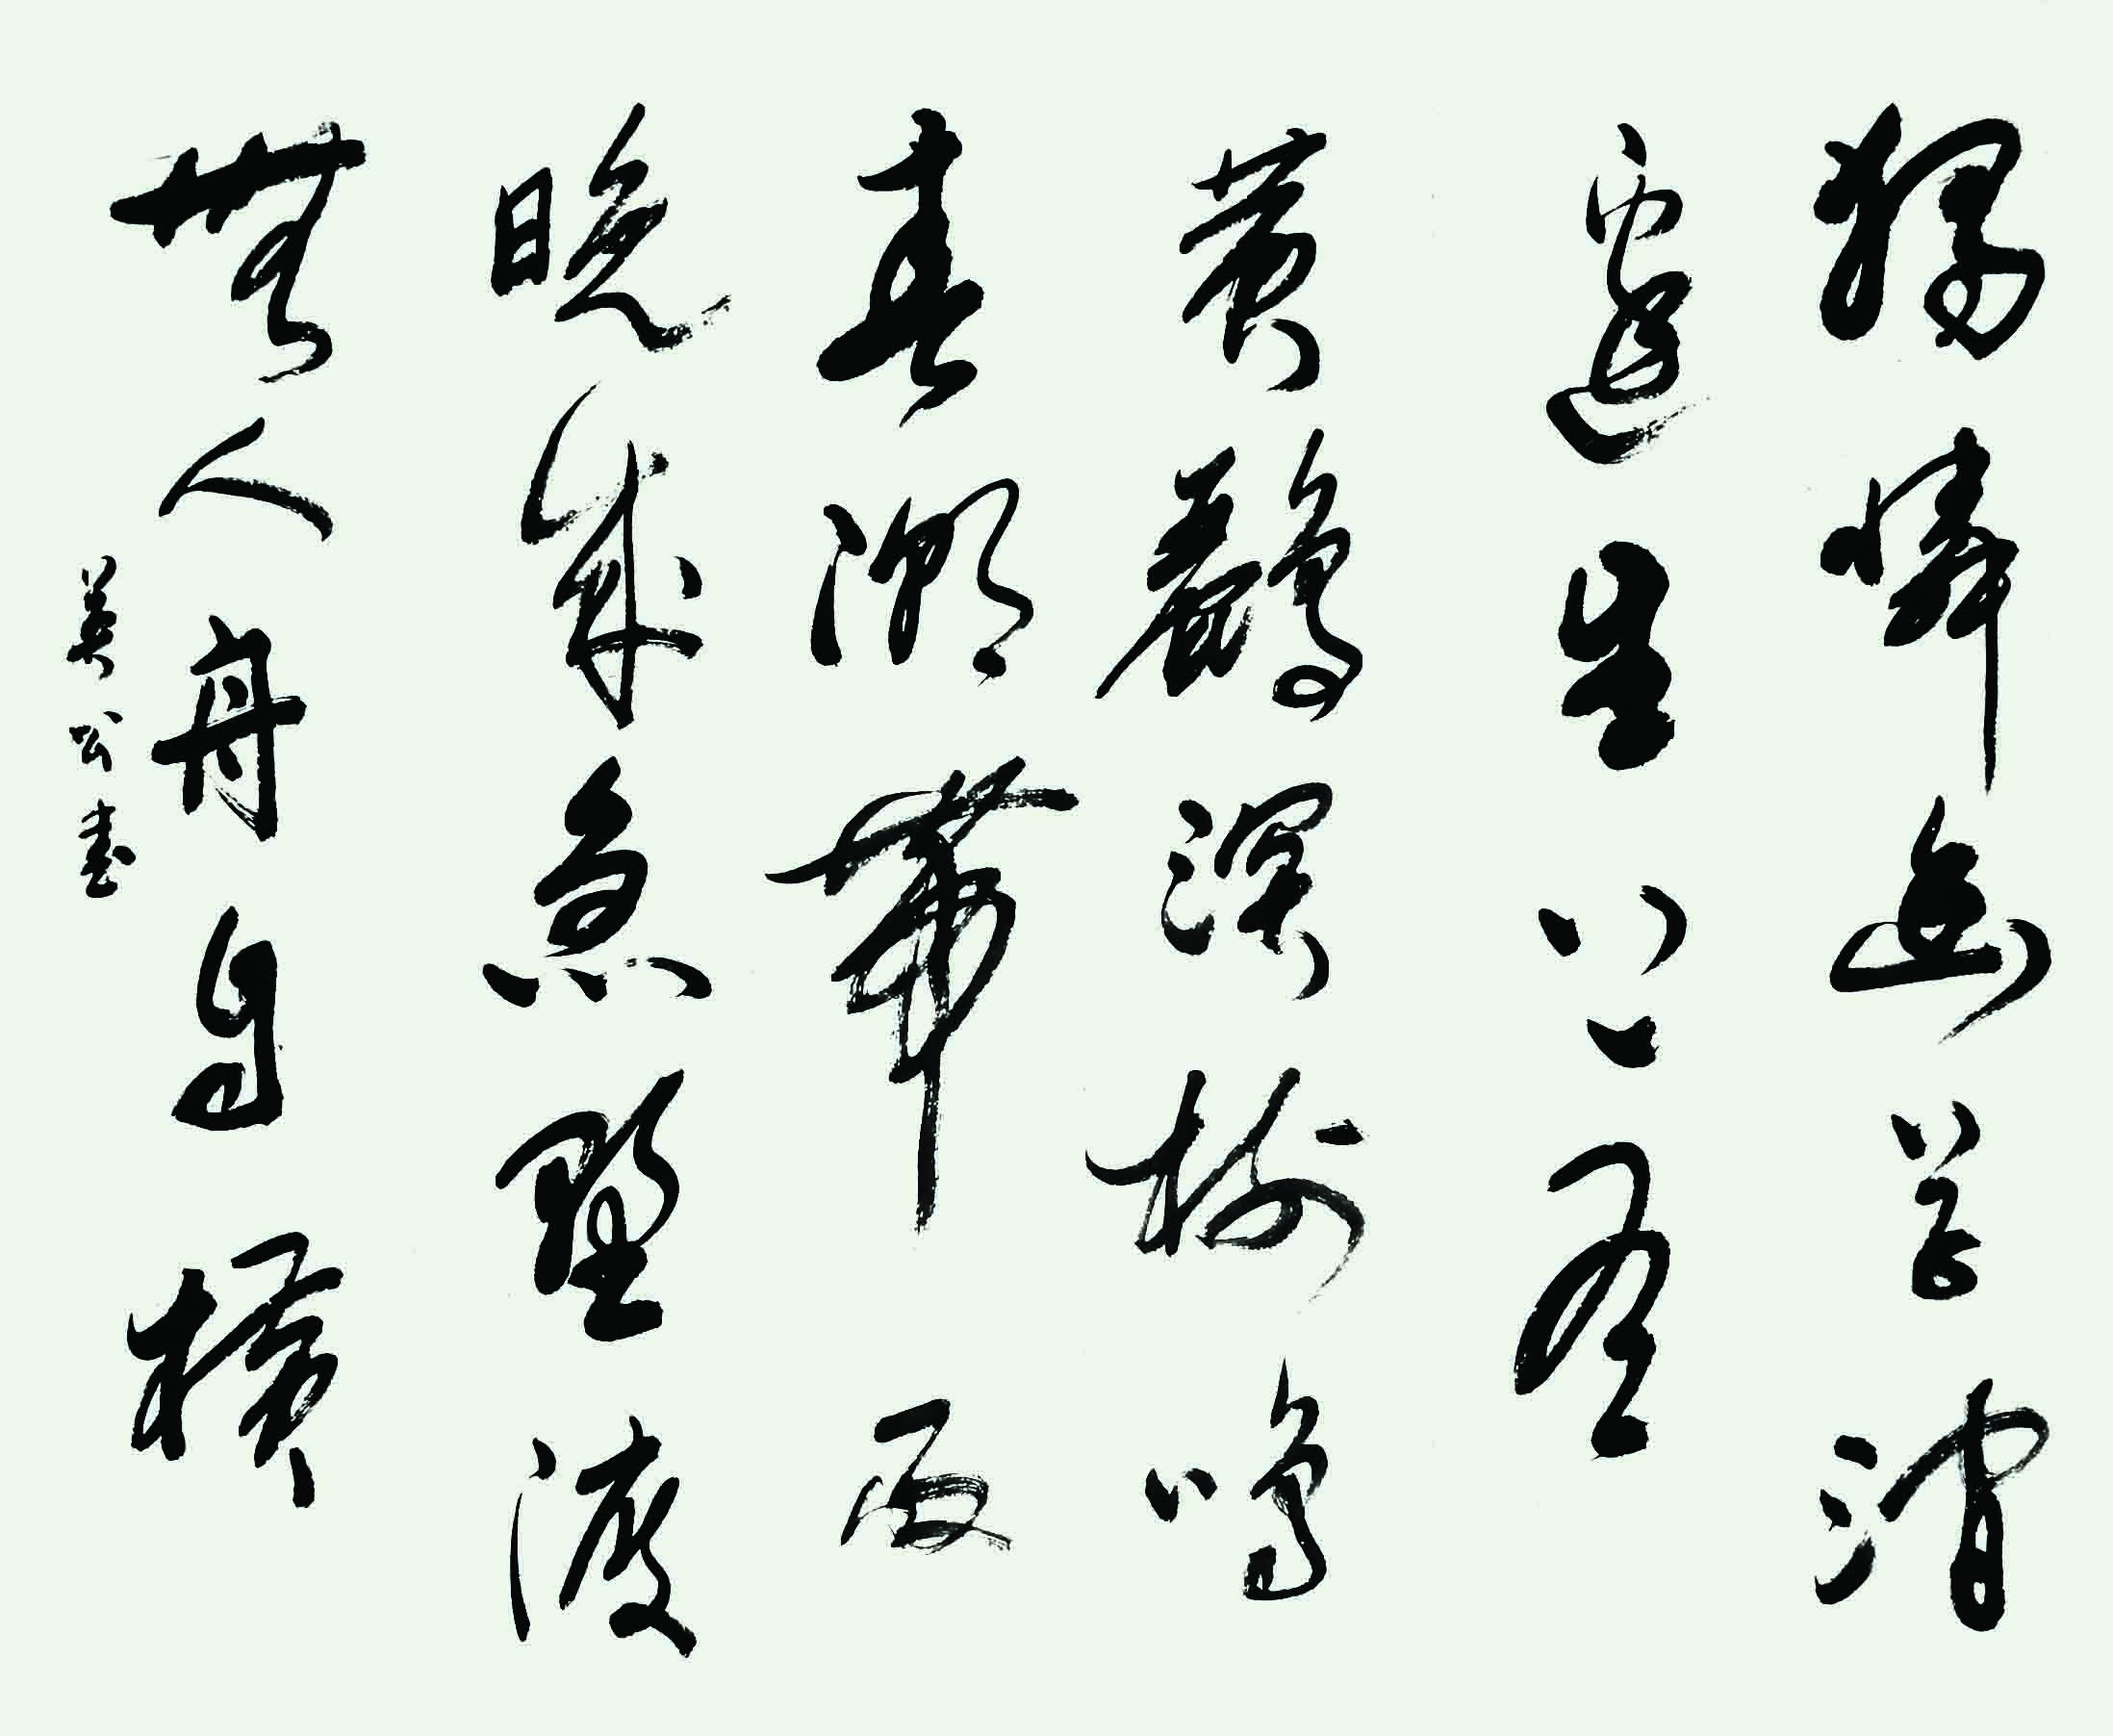 獨憐幽草澗
邊生上有
黃鸝深樹鳴
春潮帶雨
晚來急野渡
無人舟自橫
書